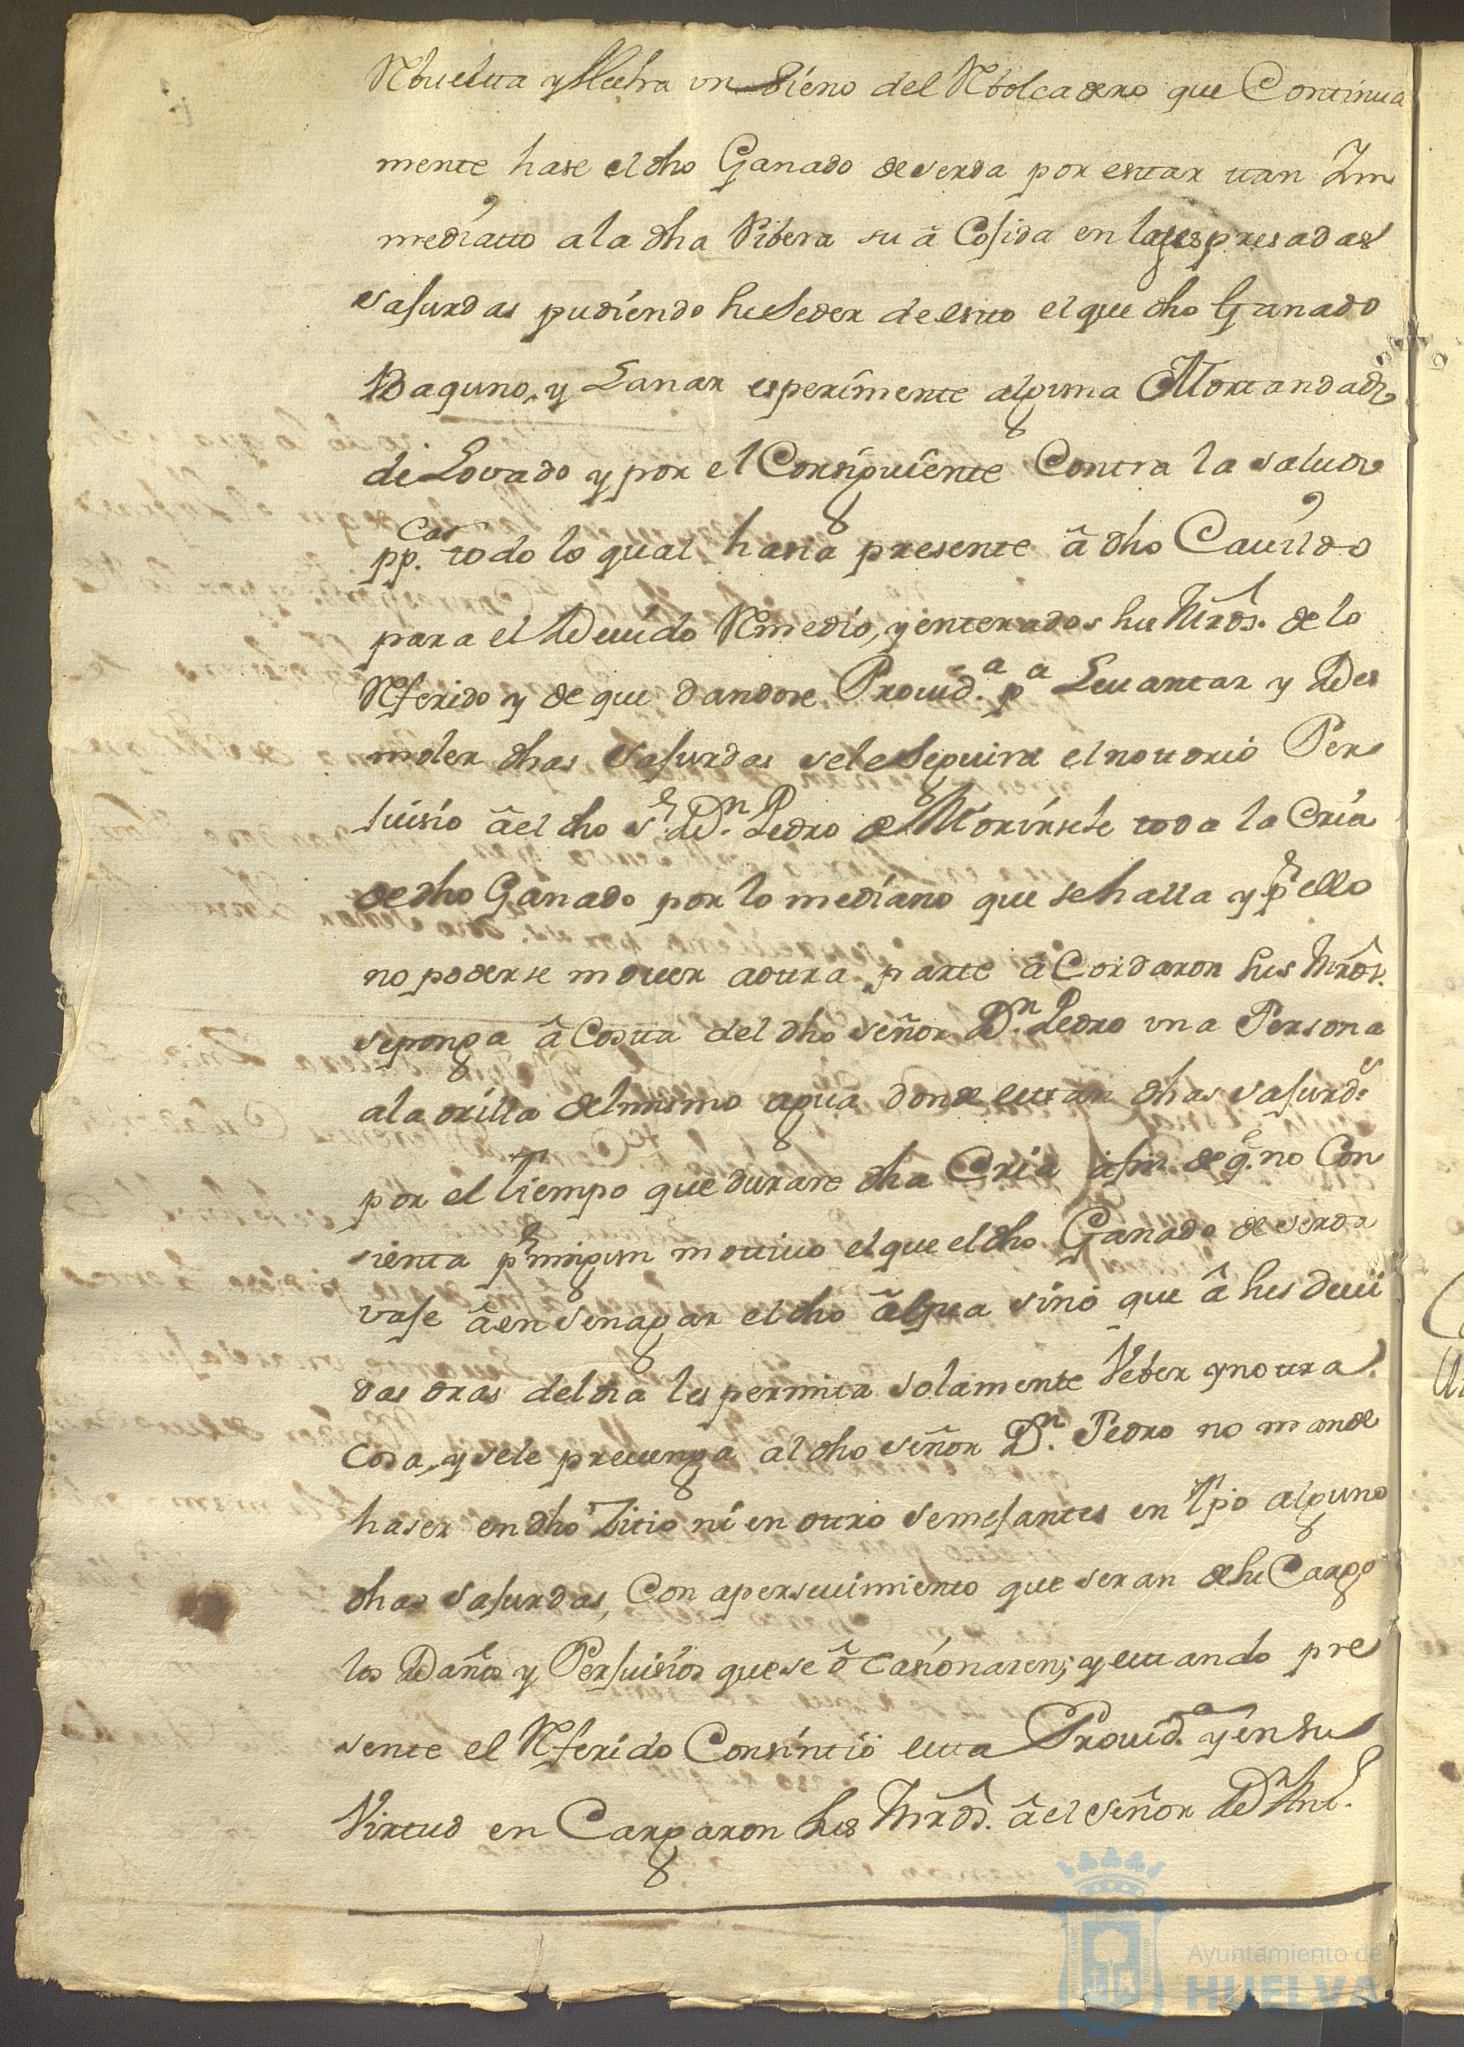 Rbuelta y hecha un Sieno del Rbolcadero que Continua
mente hase el dho Ganado de serda por estar tan Im
mediatto a la dha Ribera su â Cosida en las espresadas
Sasurdas pudiendo suseder de esto el que dho Ganado
Baquno, y Lanar esperimente alguna Mortandad
de Lovado y por el Consiguiente Contra la salud
pp.cas todo lo qual hasia presente â dho Cavildo
para el Devido Rmedio, y enterados sus Mrds. de lo
Rferido y de que dandose Provid.a p.a Levantar y Des
moler dhas Sasurdas se le seguira el notorio Per
suisio â el dho S.r D.n Pedro de Morirsele toda la Cria
de dho Ganado por lo mediano que se halla y pr ello
no poderse mover a otra parte â Cordaron sus Mrds.
se ponga â Costa del dho señor D.n Pedro una Persona
a la orilla del mismo agua donde estan dhas Sasurd.s
por el Tiempo que durare dha Cria, a fin de q.e no Con
sienta pr ningun motivo el que el dho Ganado de serda
vase â en Senagar el dho âlgua sino que â sus devi
das oras del dia les permita solamente Veber y no otra
Cosa, y se le prevenga al dho señor D.n Pedro no mande
haser en dho Zitio ni en otro semesantes en tpo alguno
dhas Sasurdas, Con apersevimiento que seran de su Cargo
los Daños y Persuisios que se ôcasionaren; y estando pre
sente el Rferido Consintió esta Provid.a y en su
Virtud en Cargaron sus Mrds. â el señor D.n Ant.o
Ayuntamiento de
HUELVA